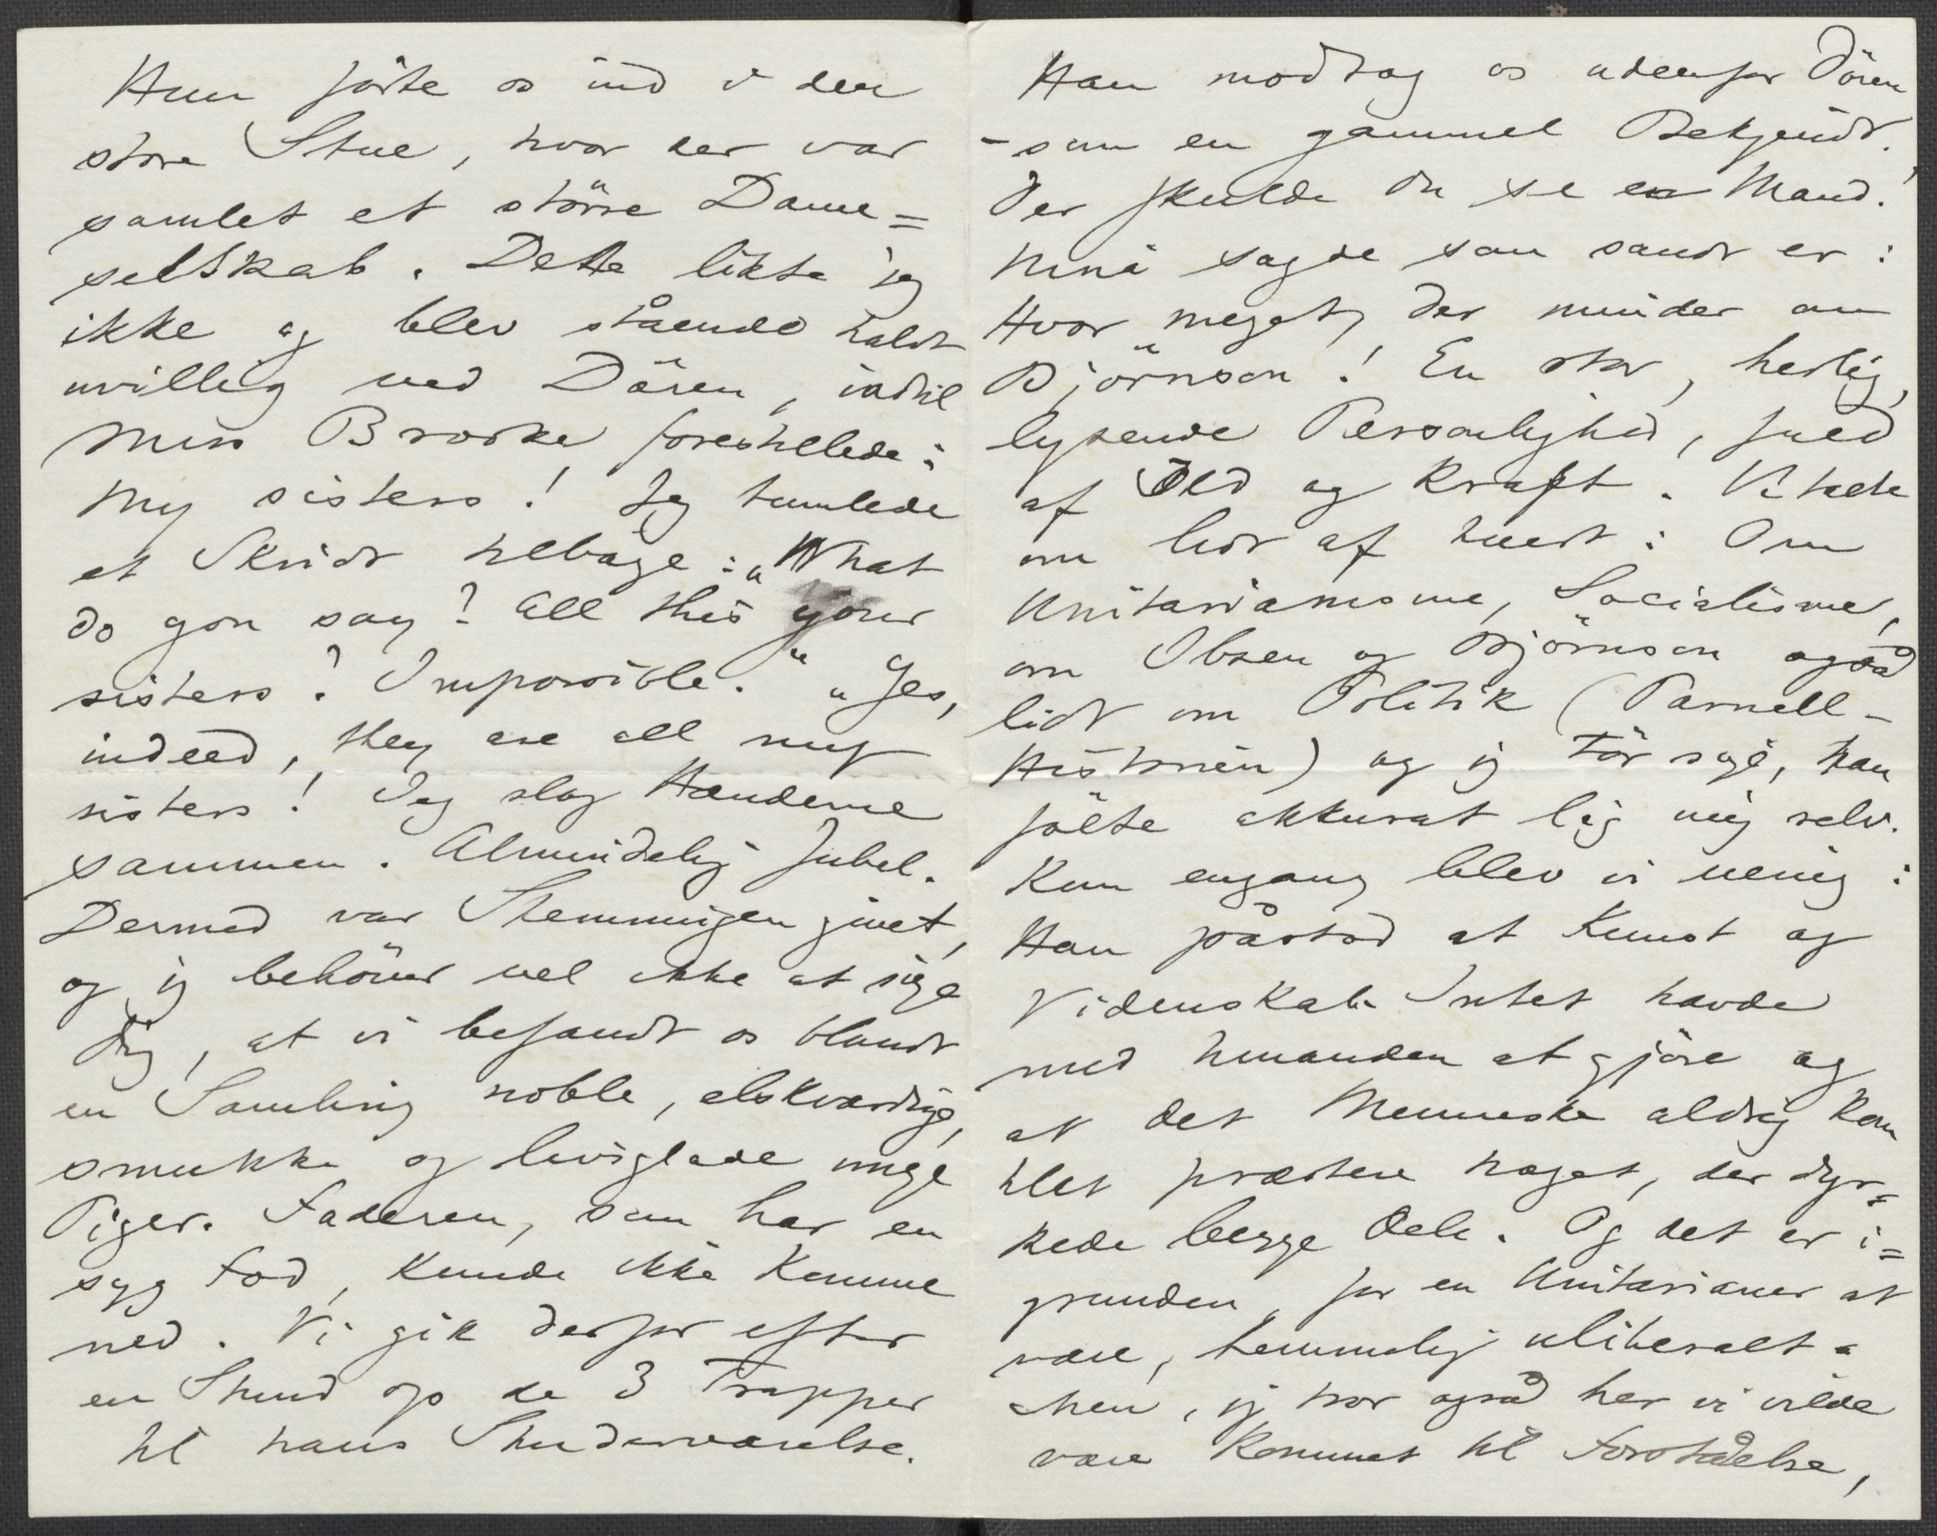 Hun förte os ind i den
store Stue, hvor der var
samlet et större Dame=
selskab. Dette likte jeg
ikke og blev stående halvt
uvillig ved Dören, indtil
Miss Brooke forestillede:
My sisters! Jeg tumlede
et Skridt tilbage: „What
do you say? All this your
sisters? Impossible." „Yes,
indeed, they are all my
sisters! Jeg slog Hænderne
sammen. Almindelig Jubel.
Dermed var Stemningen givet,
og jeg behöver vel ikke at sige
dig, at vi befandt os blandt
en Samling noble, elskværdige,
smukke og livsglade unge
Piger. Faderen, som har en
syg Fod, kunde ikke komme
ned. Vi gik derfor efter
en Stund op de 3 Trapper
til hans Studerværelse.
Han modtog os udenfor Dören
– som en gammel Bekjendt.
Der skulde du se en Mand!
Nina sagde som sandt er:
Hvor meget, der minder om
Björnson! En stor, herlig,
lysende Personlighed, fuld
af Ild og Kraft. Vi talte
om lidt af hvert: Om
Unitarianisme, Socialisme,
om Ibsen og Björnson også
lidt om Politik (Parnell-
Historien) og jeg tör sige, han
fölte akkurat lig mig selv.
Kun engang blev vi uenig:
Han påstod at Kunst og
Videnskab Intet havde
med hinanden at gjöre og
at det Menneske aldrig kom
til at præstere noget, der dyr=
kede begge Dele. Og det er i=
grunden, for en Unitarianer at
være, temmelig uliberalt.
Men, jeg tror også her vi vilde
være kommet til Forståelse,